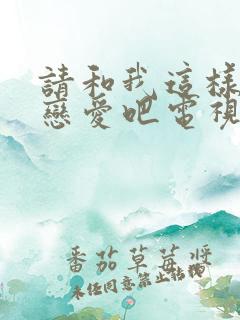 請和我這樣
戀愛吧電視
番茄草莓將
未任同意禁止转摘